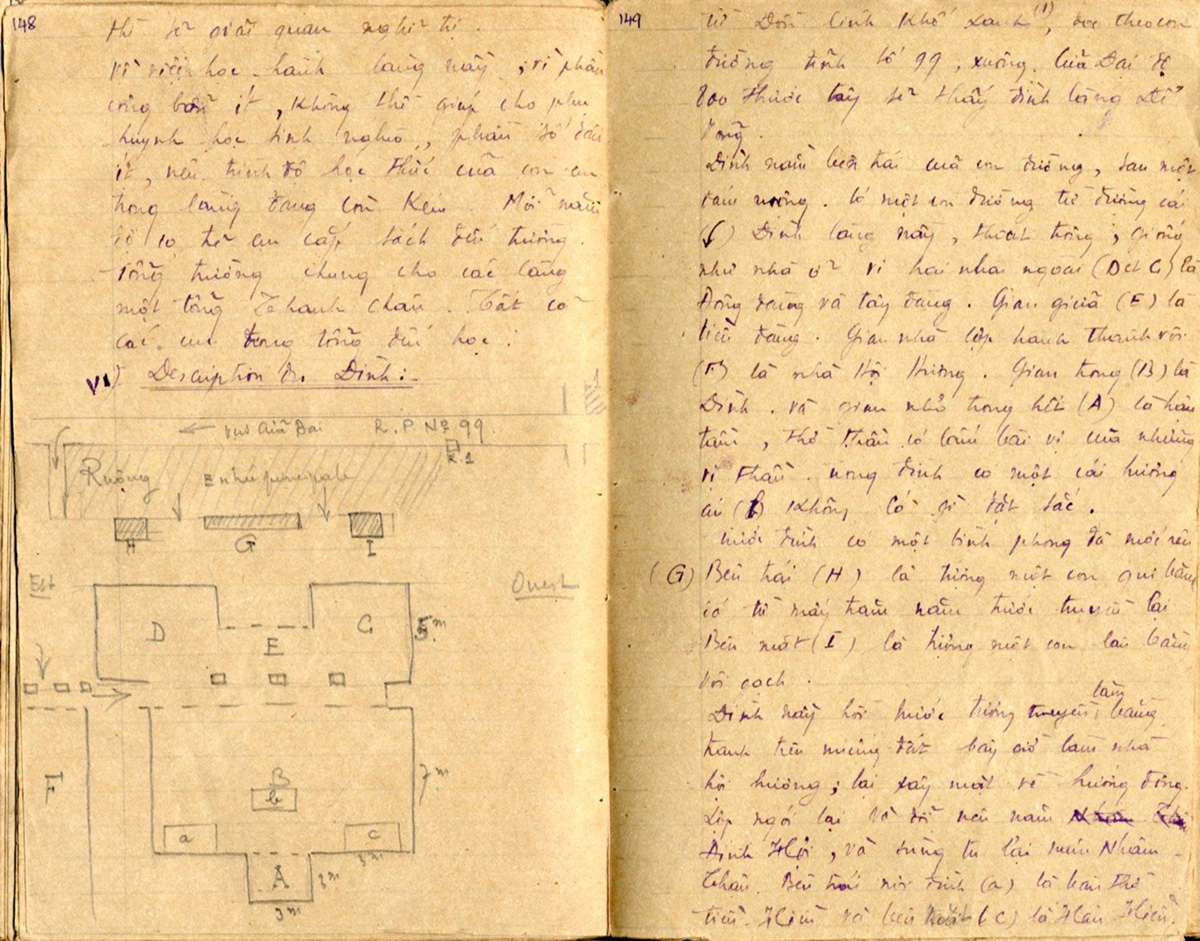 148
thì sẽ giải quan nghĩ trị.
Vì việc học hành làng này, vì phần
công bổn ít, không thể giúp cho phụ
huynh học sinh nghèo, phần số dân
ít, nên trình độ học thức của con em
trong làng đang còn kém. Mỗi năm
có thể cấp sách đến trường.
Tổng trường chung cho các làng
một tổng Thanh Chân. Tất cả
các em trong tổng đến học.
VI) Description du Đình:
← vers Giữa Đai R.P Nº 99
K.1
Ruộng Entrée principale
H G I
Est Ouest
D E C 5m
F B b 7m
a c 3m
A 2m
3m
149
từ Đồn lính Khố xanh (1), dọc theo con
đường tỉnh số 99, xuống Đại
800 thước tây sẽ thấy đình làng
Đình nằm bên trái của con đường, sau một
đám ruộng. Có một con đường từ đường cái
Đình làng này, thoạt trông, giống
như nhà ở vì hai nhà ngoài (D et C) là
Đông đàng và tây đàng. Gian giữa (E) là
tiền đàng. Gian nhà lập hành thành với
(F) là nhà Hội Hương. Gian trong (B) là
Đình. và gian nhỏ trong hết (A) là hậu
tẩm, thờ thần có bài vị của những
vị thần. trong đình có một cái hương
án (b) không có gì đặt sắc.
Trước đình có một bình phong đã mới
(G) Bên trái (H) là tượng một con qui bằng
có từ mấy trăm năm trước truyền lại
Bên mặt (I) là tượng một con lân bằng
vôi gạch.
Đình này hồi trước tương truyền làm bằng
tranh trên miếng đất bây giờ làm nhà
hội hương, lại xây mặt về hướng đông.
Lợp ngói lại và đổi nên năm
Đinh Hợi, và trùng tu lại năm Nhâm
Thân. Bên trái nơi đình (a) là bàn thờ
tiền Hiền và bên (c) là Hậu Hiền.